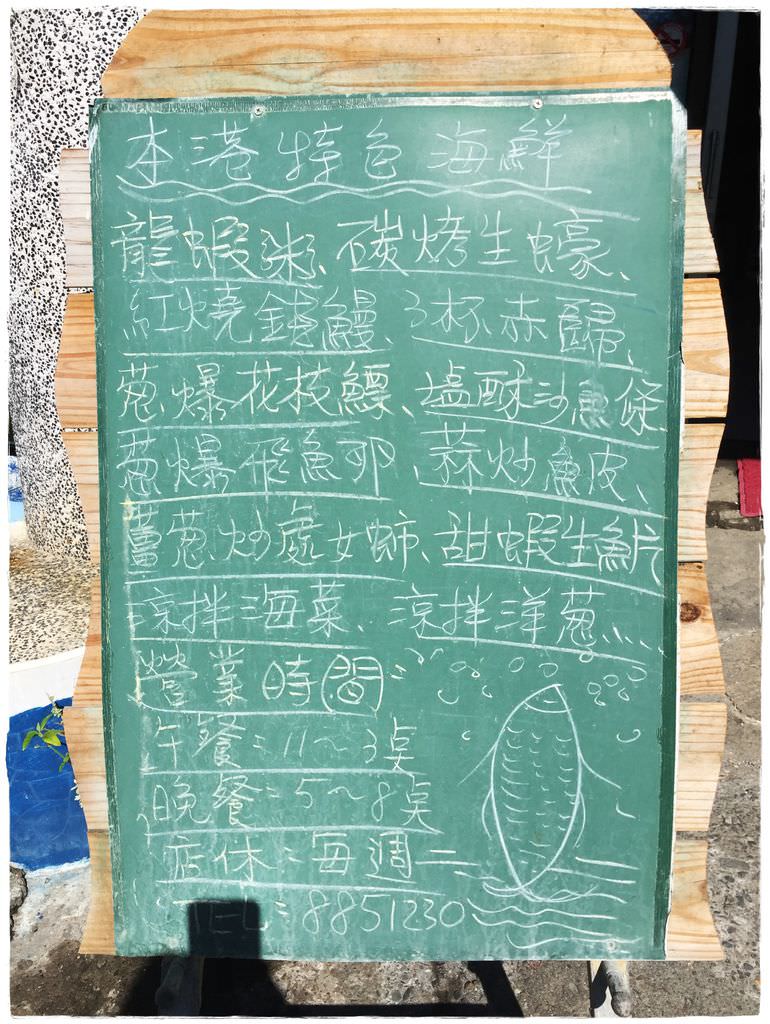 本港特色海鮮
龍蝦粥、碳烤生蠔、
紅燒錢鰻、3杯赤歸、
蔥爆花枝鰾、塩酥沙魚條
蔥爆飛魚卵、蒜炒魚皮、
薑蔥炒處女蚵、甜蝦生魚片
涼拌海菜、涼拌洋蔥……
營業時間:
午餐:11~3點
晚餐:5~8點
店休:每週一
TEL:8851230